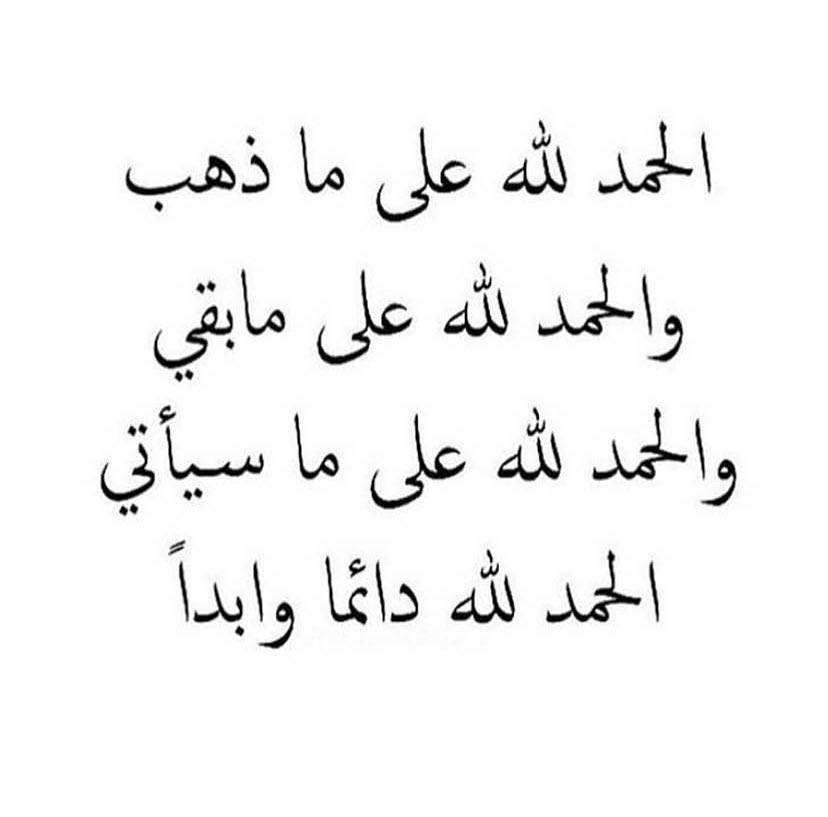 الحمد لله على ما ذهب
والحمد لله على مابقي
والحمد لله على ما سيأتي
الحمد لله دائما وابداً